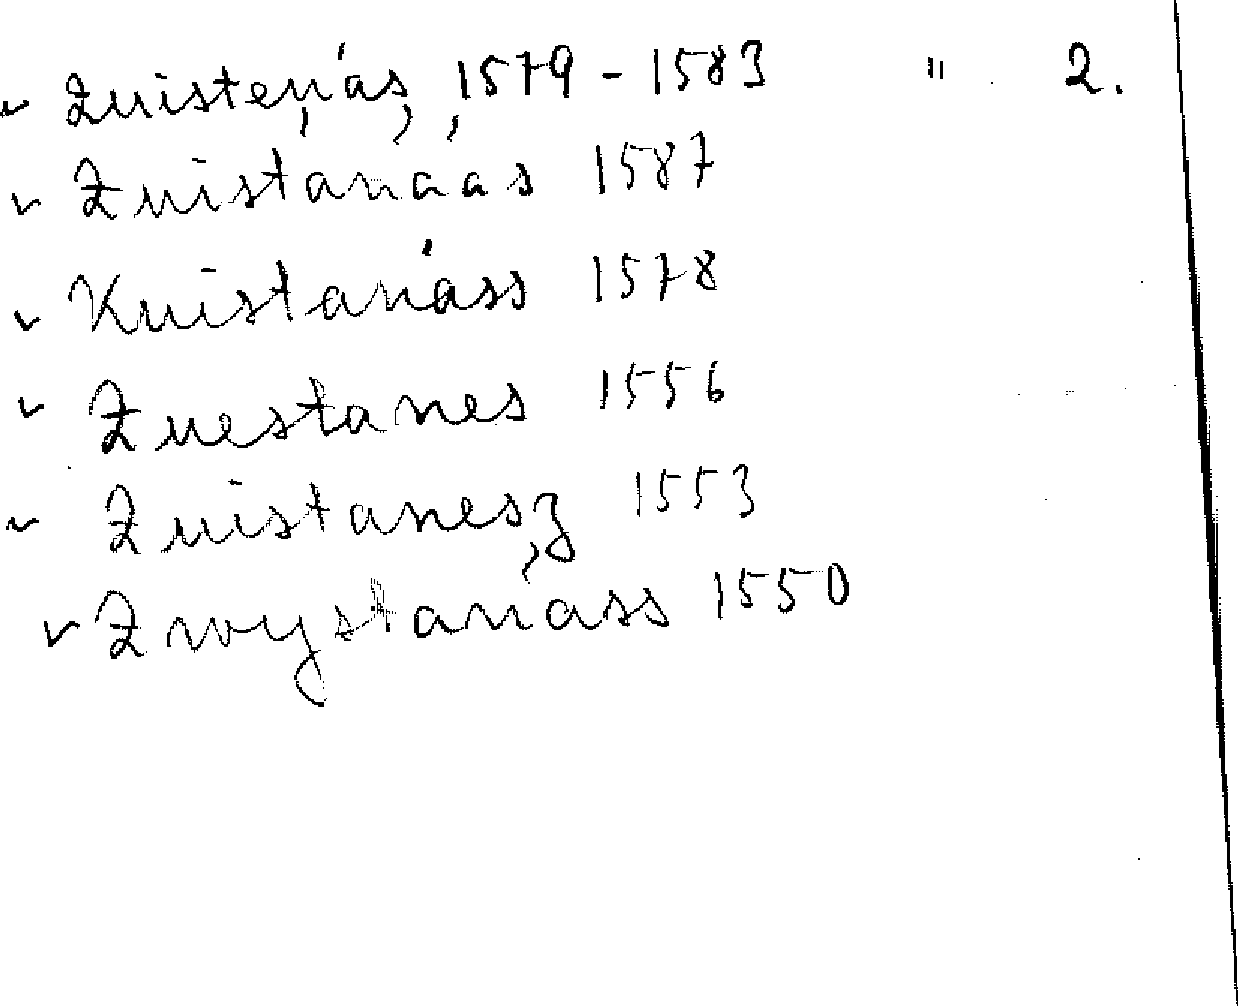 ✓ Zuisteņás, 1579 - 1583 " 2.
✓ Zuistanaas 1587
✓ Knistanáss 1578
✓ Zuestanes 1556
✓ Zuistanesz 1553
✓ Zwystanáss 1550